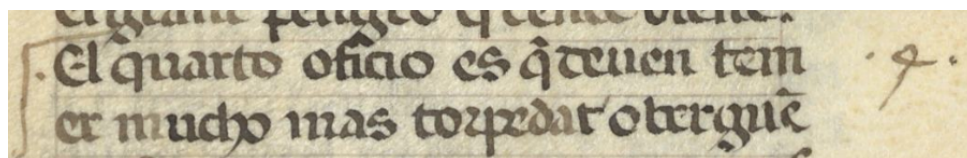 El quarto oficio es q̃ deuen tem
er mucho mas torpedat o berguẽ
.4.